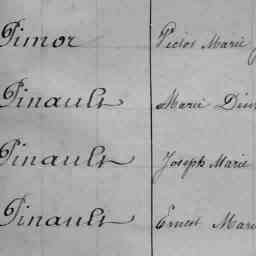 Pimor Victor Marie
Pinault Marie
Pinault Joseph Marie
Pinault Ernest Marie